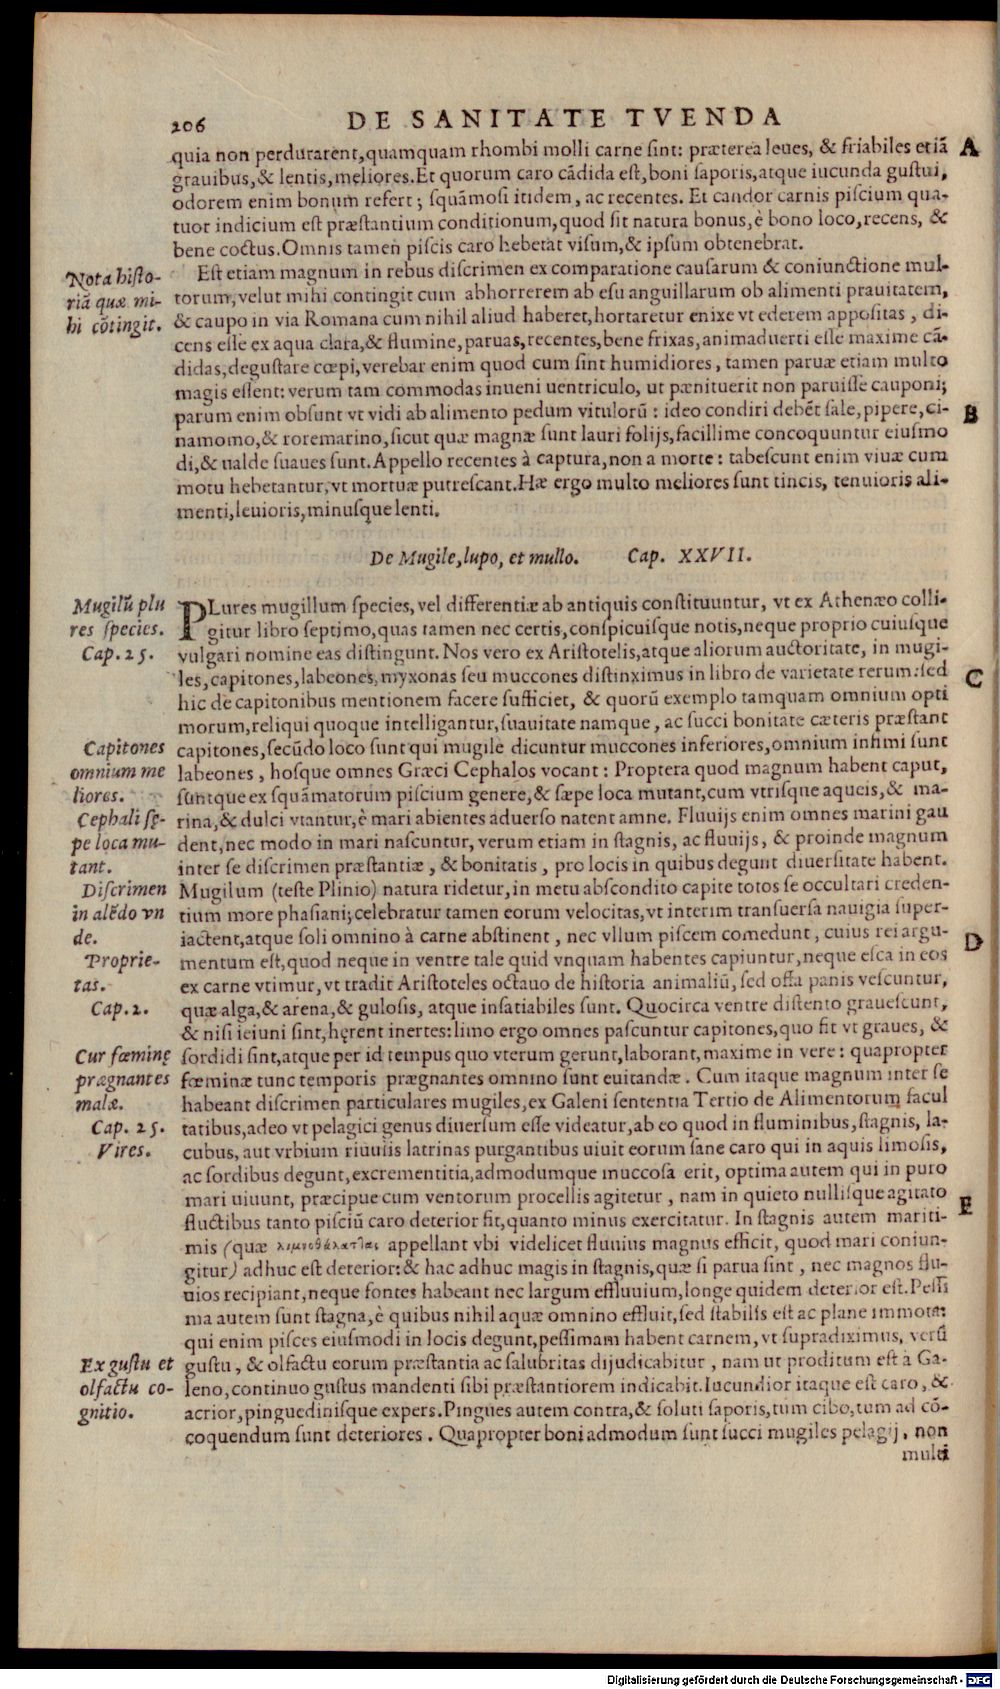 206 DE SANITATE TVENDA
quia non perdurarent, quamquam rhombi molli carne sint: præterea leues, & friabiles etiã A
grauibus, & lentis, meliores. Et quorum caro cãdida est, boni saporis, atque iucunda gustui,
odorem enim bonum refert; squãmosi itidem, ac recentes. Et candor carnis piscium qua-
tuor indicium est præstantium conditionum, quod sit natura bonus, è bono loco, recens, &
bene coctus. Omnis tamen piscis caro hebetat visum, & ipsum obtenebrat.
Nota histo-
riã quæ mi-
hi cõtingit.
Est etiam magnum in rebus discrimen ex comparatione causarum & coniunctione mul-
torum, velut mihi contingit cum abhorrerem ab esu anguillarum ob alimenti prauitatem,
& caupo in via Romana cum nihil aliud haberet, hortaretur enixe vt ederem appositas, di-
cens esse ex aqua clara, & flumine, paruas, recentes, bene frixas, animaduerti esse maxime cã-
didas, degustare cœpi, verebar enim quod cum sint humidiores, tamen paruæ etiam multo
magis essent: verum tam commodas inueni uentriculo, ut pænituerit non paruisse cauponi;
parum enim obsunt vt vidi ab alimento pedum vitulorũ: ideo condiri debẽt sale, pipere, ci- B
namomo, & roremarino, sicut quæ magnæ sunt lauri folijs, facillime concoquuntur eiusmo
di, & ualde suaues sunt. Appello recentes à captura, non a morte: tabescunt enim viuæ cum
motu hebetantur, vt mortuæ putrescant. Hæ ergo multo meliores sunt tincis, tenuioris ali-
menti, leuioris, minusque lenti.
De Mugile, lupo, et mullo. Cap. XXVII.
Mugilũ plu
res species.
Cap. 25.
PLures mugillum species, vel differentiæ ab antiquis constituuntur, vt ex Athenæo colli-
gitur libro septimo, quas tamen nec certis, conspicuisque notis, neque proprio cuiusque
vulgari nomine eas distingunt. Nos vero ex Aristotelis, atque aliorum auctoritate, in mugi-
les, capitones, labeones, myxonas seu muccones distinximus in libro de varietate rerum: sed C
hic de capitonibus mentionem facere sufficiet, & quorũ exemplo tamquam omnium opti
morum, reliqui quoque intelligantur, suauitate namque, ac succi bonitate cæteris præstant
Capitones
omnium me
liores.
Cephali sę-
pe loca mu-
tant.
Discrimen
in alẽdo vn
de.
Proprie-
tas.
Cap. 2.
capitones, secũdo loco sunt qui mugile dicuntur muccones inferiores, omnium infimi sunt
labeones, hosque omnes Græci Cephalos vocant: Proptera quod magnum habent caput,
suntque ex squãmatorum piscium genere, & sæpe loca mutant, cum vtrisque aqueis, & ma-
rina, & dulci vtantur, è mari abientes aduerso natent amne. Fluuijs enim omnes marini gau
dent, nec modo in mari nascuntur, verum etiam in stagnis, ac fluuijs, & proinde magnum
inter se discrimen præstantiæ, & bonitatis, pro locis in quibus degunt diuersitate habent.
Mugilum (teste Plinio) natura ridetur, in metu abscondito capite totos se occultari creden-
tium more phasiani; celebratur tamen eorum velocitas, vt interim transuersa nauigia super-
iactent, atque soli omnino à carne abstinent, nec vllum piscem comedunt, cuius rei argu- D
mentum est, quod neque in ventre tale quid vnquam habentes capiuntur, neque esca in eos
ex carne vtimur, vt tradit Aristoteles octauo de historia animaliũ, sed offa panis vescuntur,
quæ alga, & arena, & gulosis, atque insatiabiles sunt. Quocirca ventre distento grauescunt,
& nisi ieiuni sint, hęrent inertes: limo ergo omnes pascuntur capitones, quo fit vt graues, &
Cur fœminę
prægnantes
malæ.
Cap. 25.
Vires.
sordidi sint, atque per id tempus quo vterum gerunt, laborant, maxime in vere: quapropter
fœminæ tunc temporis prægnantes omnino sunt euitandæ. Cum itaque magnum inter se
habeant discrimen particulares mugiles, ex Galeni sententia Tertio de Alimentorum facul
tatibus, adeo vt pelagici genus diuersum esse videatur, ab eo quod in fluminibus, stagnis, la-
cubus, aut vrbium riuulis latrinas purgantibus uiuit eorum sane caro qui in aquis limosis,
ac sordibus degunt, excrementitia, admodumque muccosa erit, optima autem qui in puro
mari uiuunt, præcipue cum ventorum procellis agitetur, nam in quieto nullisque agitato E
fluctibus tanto pisciũ caro deterior fit, quanto minus exercitatur. In stagnis autem mariti-
mis (quæ λιμνοθάλατται appellant vbi videlicet fluuius magnus efficit, quod mari coniun-
gitur) adhuc est deterior: & hac adhuc magis in stagnis, quæ si parua sint, nec magnos flu-
uios recipiant, neque fontes habeant nec largum effluuium, longe quidem deterior est. Pessi
ma autem sunt stagna, è quibus nihil aquæ omnino effluit, sed stabilis est ac plane immota:
qui enim pisces eiusmodi in locis degunt, pessimam habent carnem, vt supradiximus, verũ
Ex gustu et
olfactu co-
gnitio.
gustu, & olfactu eorum præstantia ac salubritas dijudicabitur, nam ut proditum est à Ga-
leno, continuo gustus mandenti sibi præstantiorem indicabit. Iucundior itaque est caro, &
acrior, pinguedinisque expers. Pingues autem contra, & soluti saporis, tum cibo, tum ad cõ-
coquendum sunt deteriores. Quapropter boni admodum sunt succi mugiles pelagij, non
multi
Digitalisierung gefördert durch die Deutsche Forschungsgemeinschaft - DFG